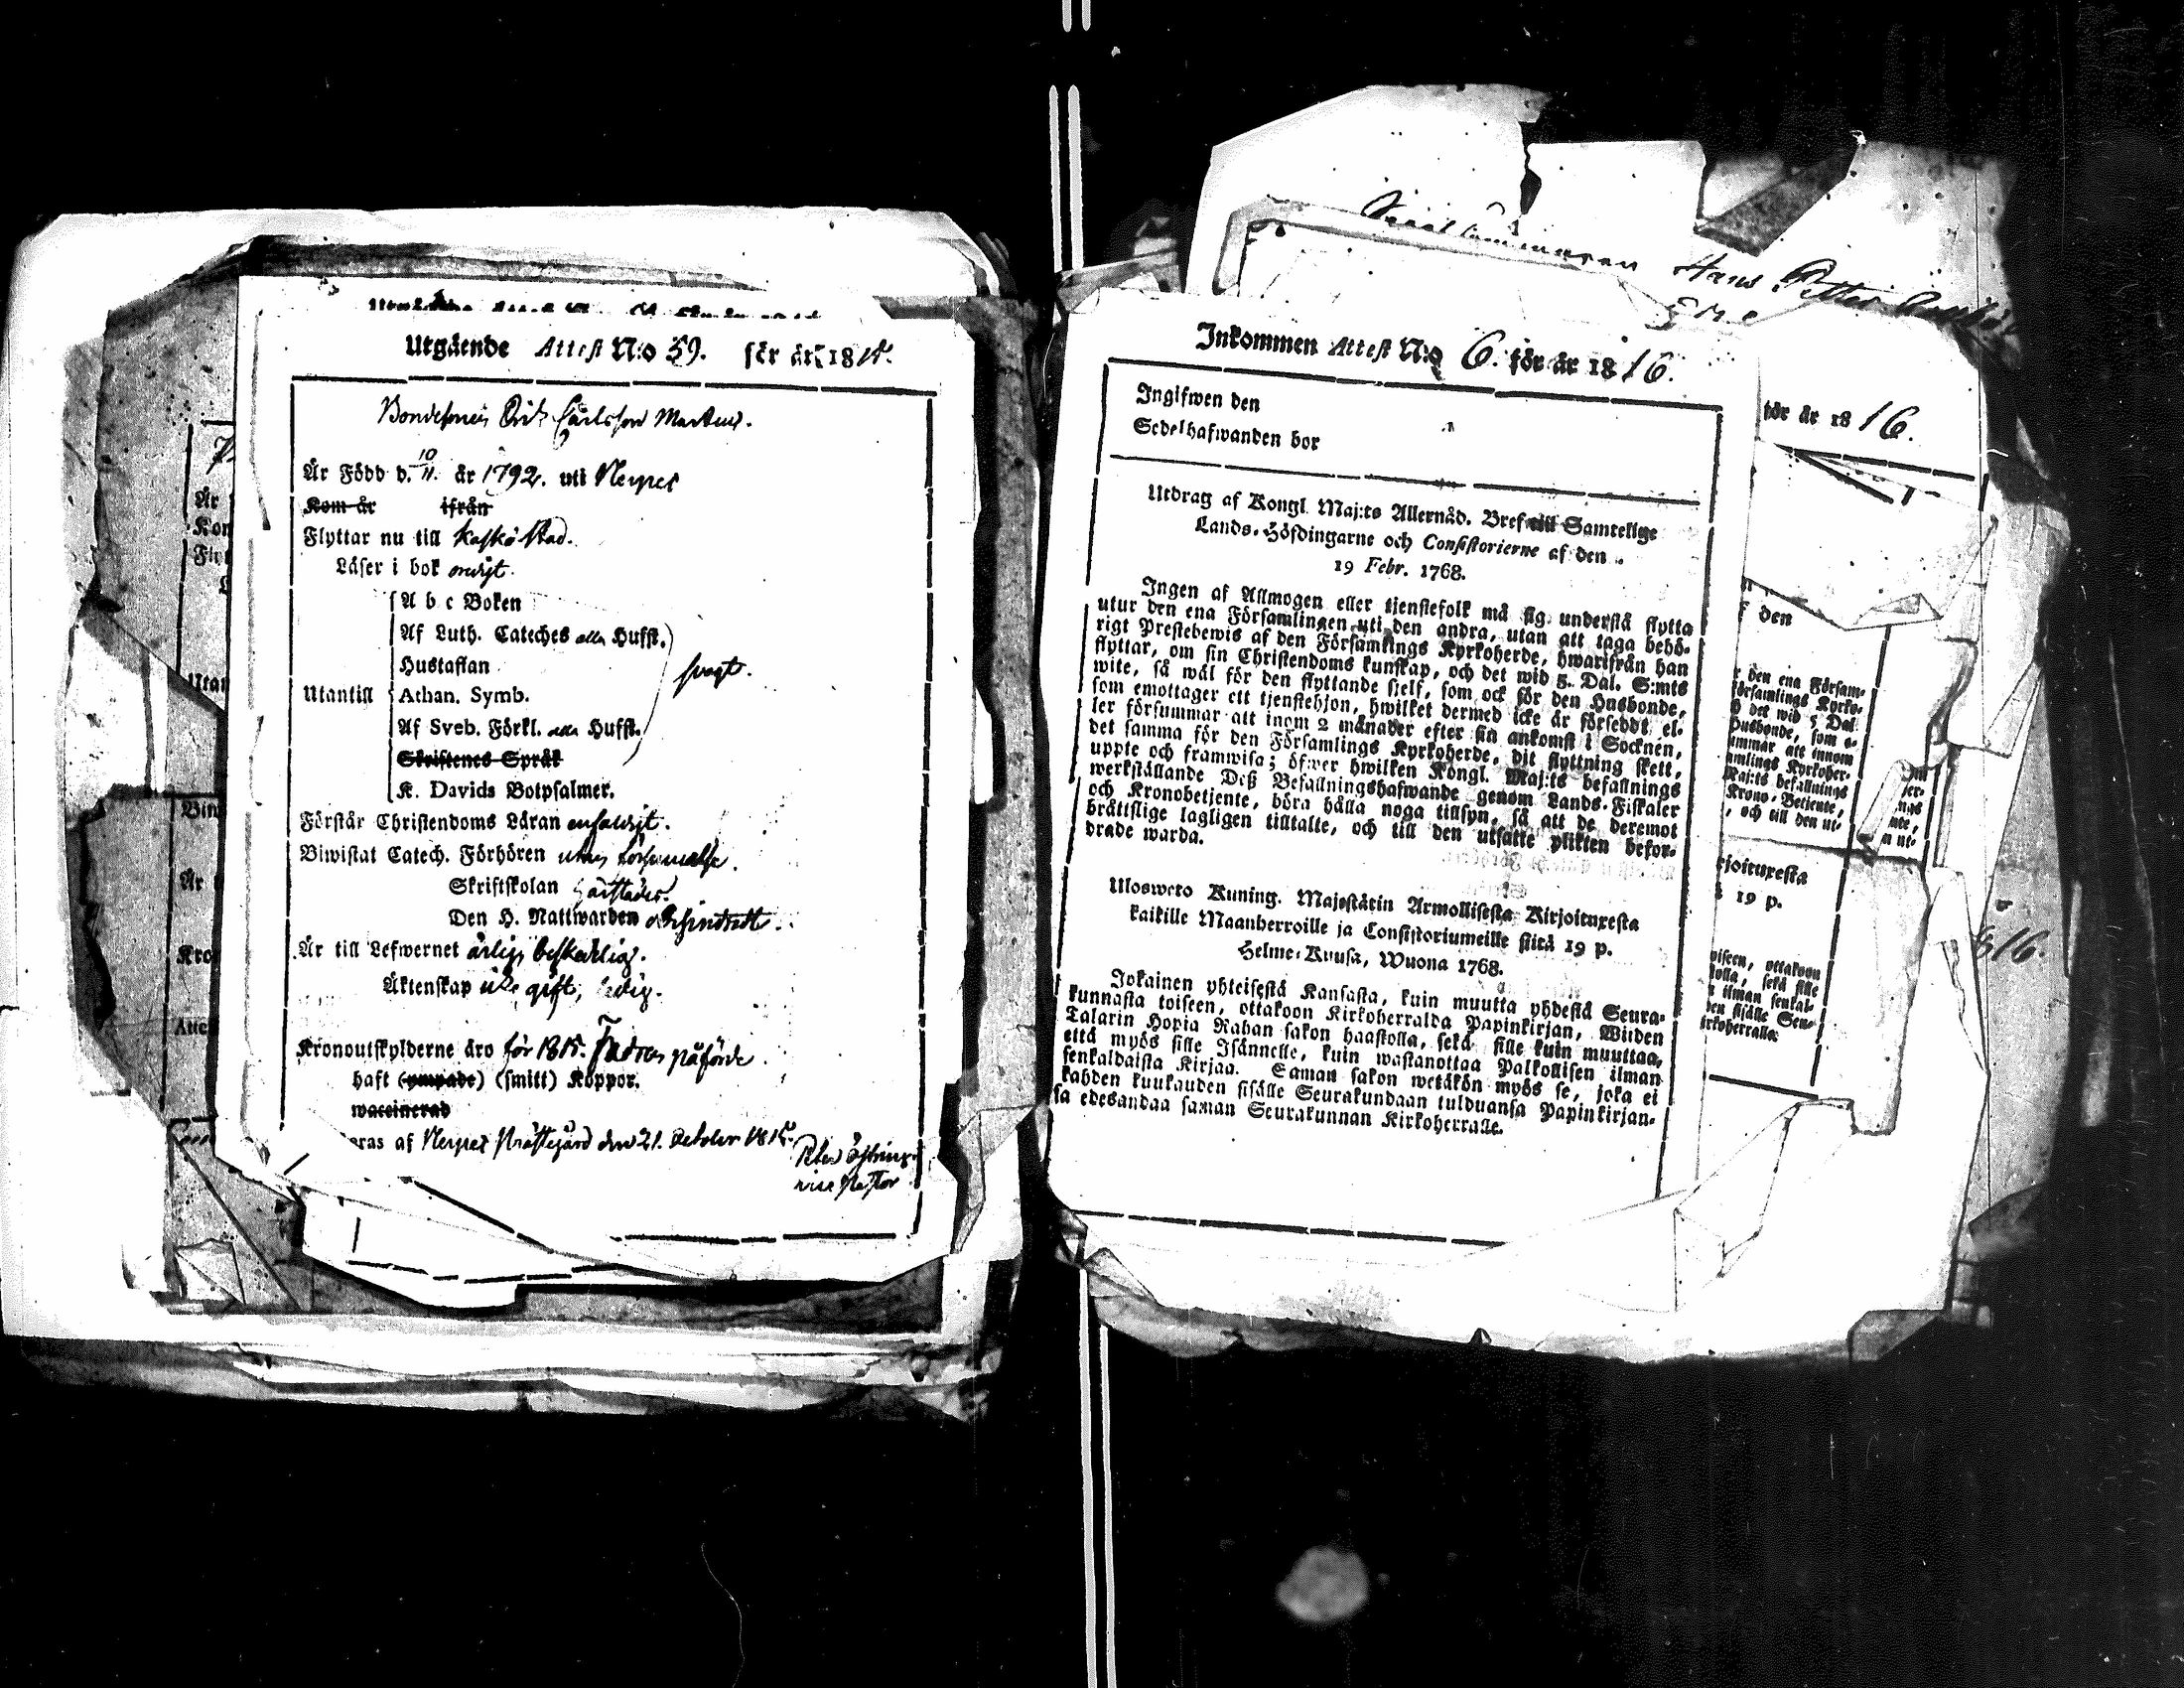 Utgående Attest N:o 59. för år 1815.
Bondesonen Carlsson
Är Född d. 10/11. år 1792. uti Nerpes
Kom år ifrån
Flyttar nu till Kaskö Stad.
Läser i bok
A b c Boken
Af Luth. Cateches Husst.
Hustaflan
Utantill Athan. Symb. svagt.
Af Sveb. Förkl. Husst.
Skriftenes Språk
K. Davids Botpsalmer.
Förstår Christendoms Läran enfaldigt.
Biwistat Catech. Förhören utan försummelse.
Skriftskolan
Den H. Nattwarden
Är till Lefwernet ärlig, beskedelig.
Äktenskap icke gift, ledig.
Kronoutskylderne äro för 1815. Fadren påförde.
haft (ympade) (smitt) Koppor.
waccinerad
eras af Nerpes Prästegård den 21. October 1815.
vice Pastor
Inkommen Attest N:o 6. för år 1816.
Ingifwen den
Sedelhafwanden bor
Utdrag af Kongl. Maj:ts Allernåd. Bref till Samtellige
Lands-Höfdingarne och Consistorierne af den
19 Febr. 1768.
Ingen af Allmogen eller tjenstefolk må sig understå flytta
utur den ena Församlingen uti den andra, utan att taga behö-
rigt Prestebewis af den Församlings Kyrkoherde, hwarifrån han
flyttar, om sin Christendoms kunskap, och det wid 5. Dal. S:mts
wite, så wäl för den flyttande sielf, som ock för den Husbonde,
som emottager ett tjenstehjon, hwilket dermed icke är förseddt, el-
ler försummar att inom 2 månader efter sin ankomst i Socknen,
det samma för den Församlings Kyrkoherde, dit flyttning skett,
uppte och framwisa; öfwer hwilken Kongl. Maj:ts befallnings
werkställande Deß Befallningshafwande genom Lands-Fiskaler
och Kronobetjente, böra hålla noga tillsyn, så att de deremot
brättslige lagligen tilltalte, och till den utsatte plikten befor-
drade warda.
Ulosweto Kuning. Majestätin Armollisesta Kirjoituxesta
kaikille Maanherroille ja Consistoriumeille siitä 19 p.
Helme-Kuusa, Wuona 1768.
Jokainen yhteisestä Kansasta, kuin muutta yhdestä Seura-
kunnasta toiseen, ottakoon Kirkoherralda Papinkirjan, Wiiden
Talarin Hopia Rahan sakon haastolla, sekä sille kuin muuttaa,
että myös sille Isännelle, kuin wastanottaa Palkollisen ilman
senkaldaista Kirjaa. Saman sakon wetäkön myös se, joka ei
kahden kuukauden sisälle Seurakundaan tulduansa Papinkirjan-
sa edesandaa saman Seurakunnan Kirkoherralle.
Hans Petter
för år 1816.
f den
r den ena Församl-
församlings Kyrko-
det wid 5 Dal
Husbonde, som e-
ummar att innom
amlings Kyrkoher-
Maj:ts befallnings
Krono-Betiente,
, och till den ut-
rjoituxesta
19 p.
oiseen, ottakoon
tolla, sekä sille
ilman senkal-
en sisälle Seu-
irkoherralla:
816.